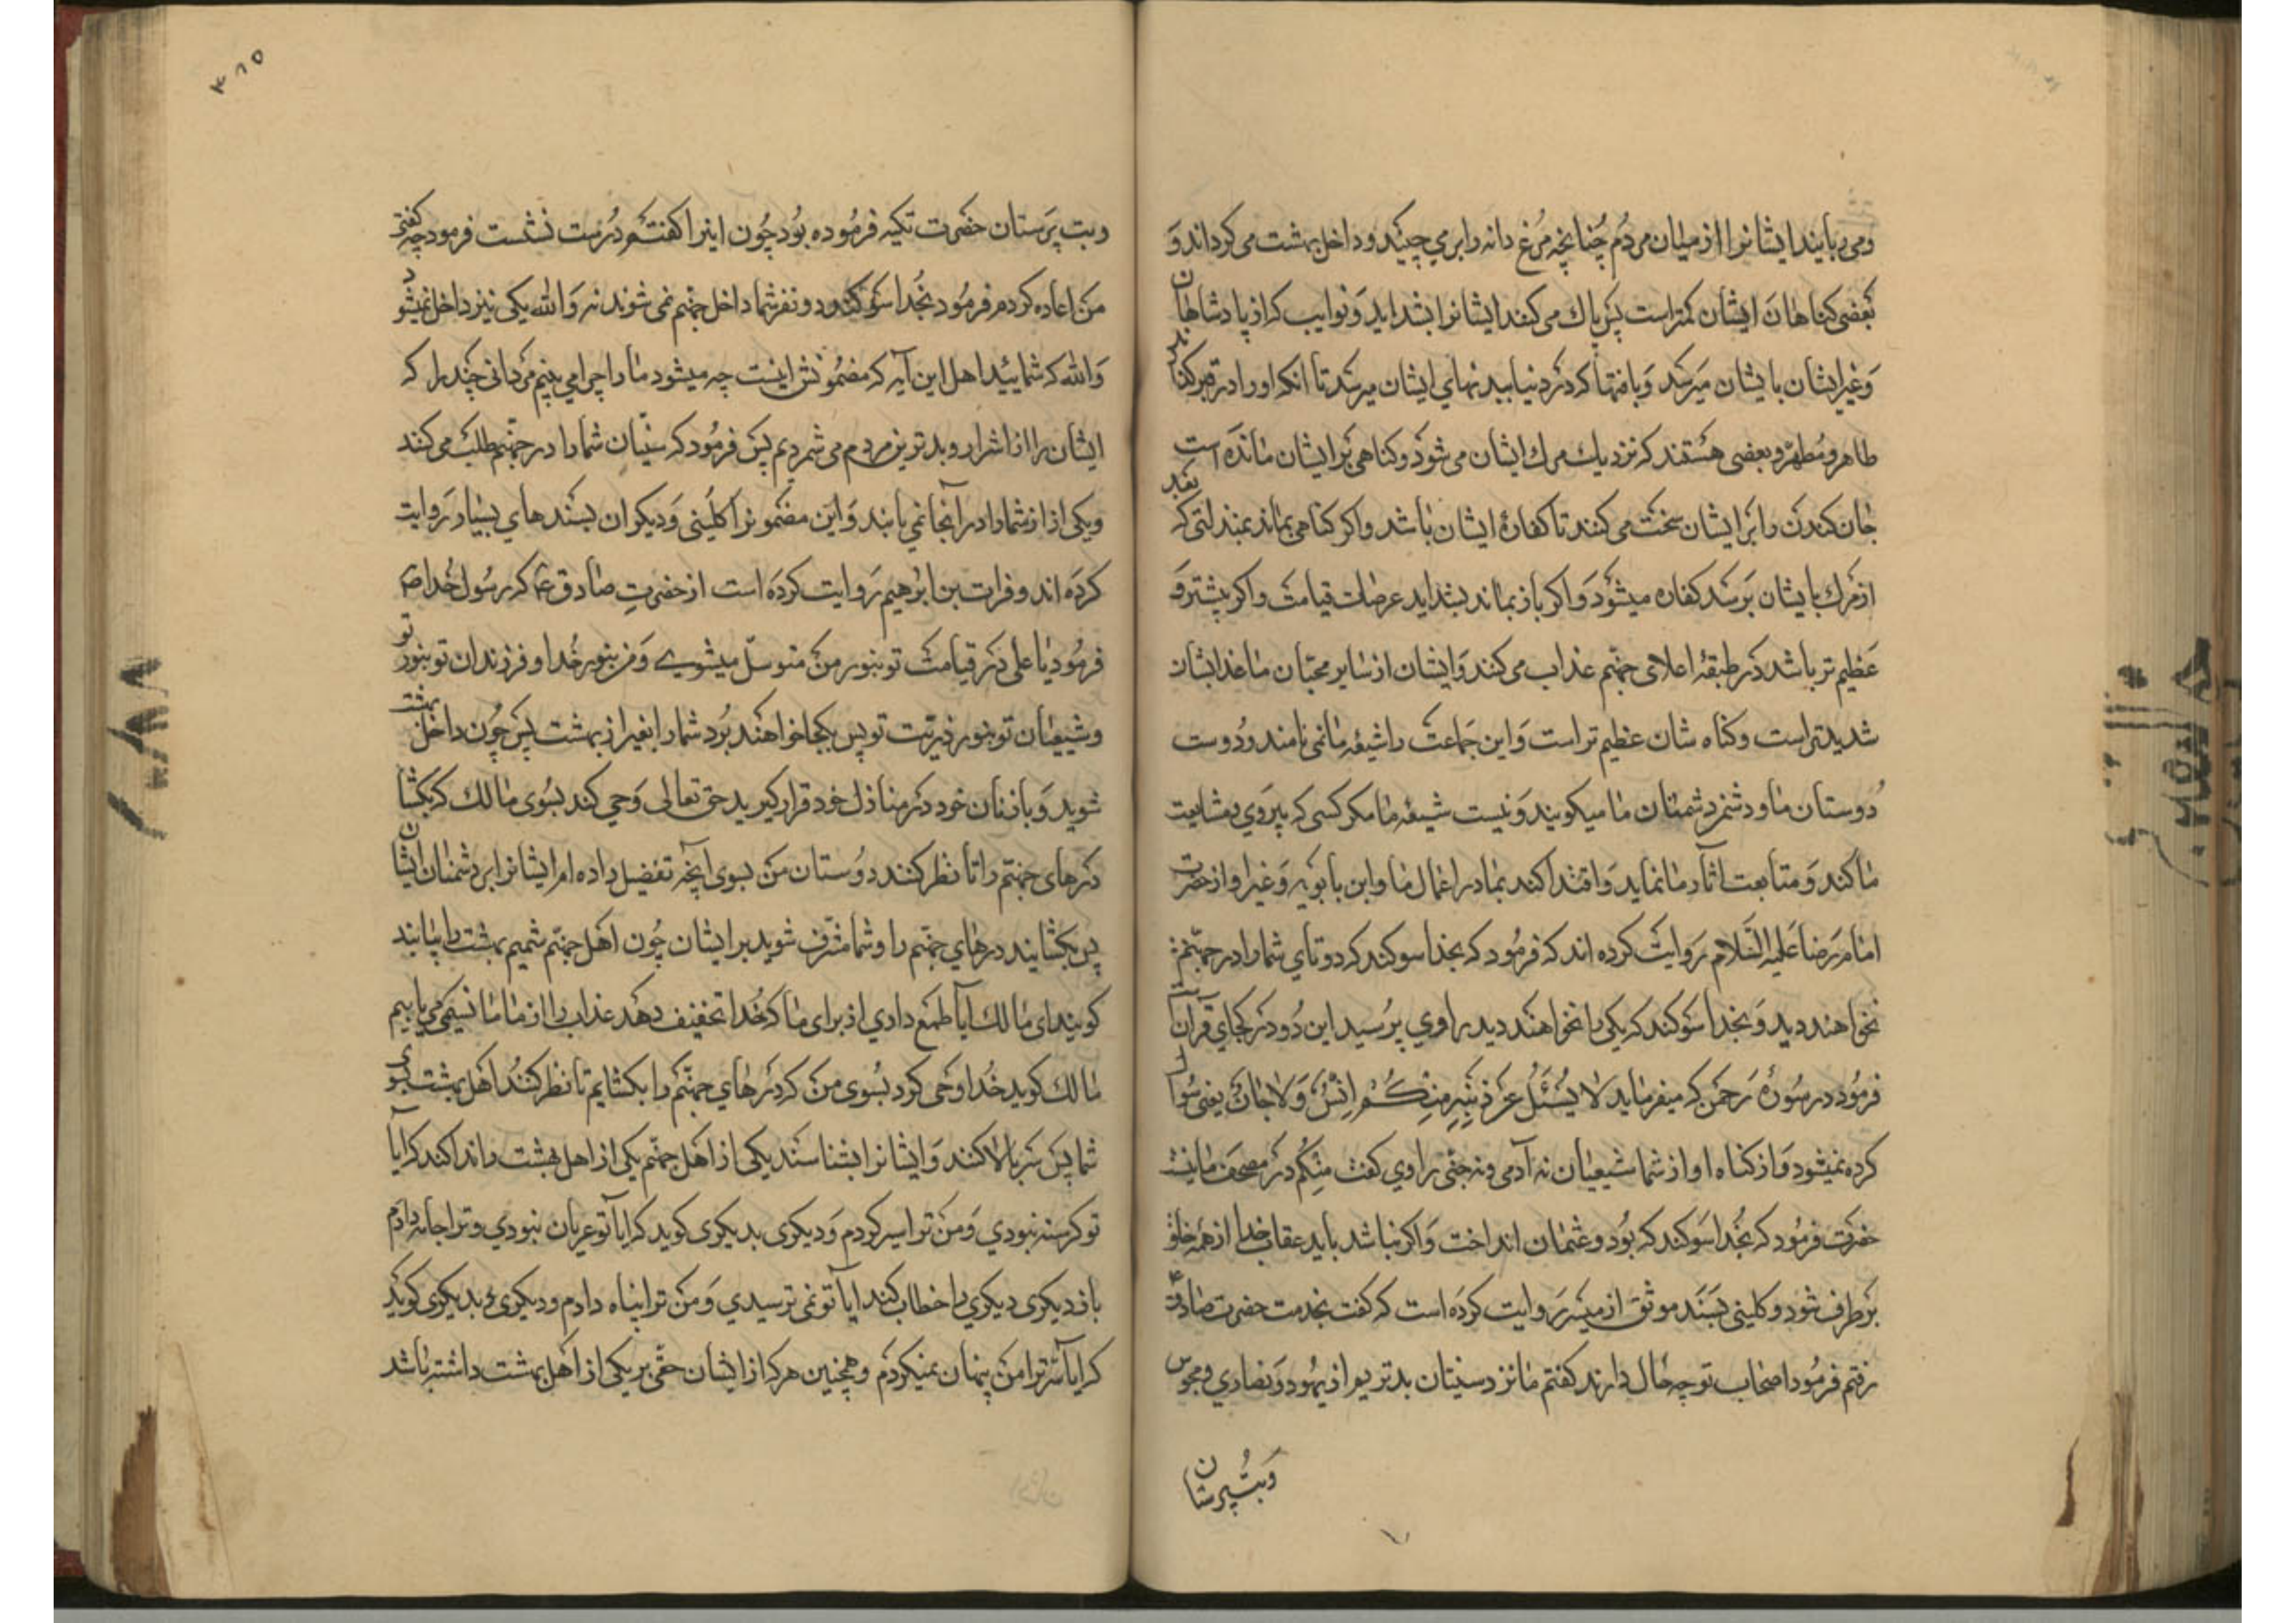 ومی ربایند ایشانرا از میان مردم چنانچه مرغ دانه را بر می چیند و داخل بهشت می کرداند و
بعضی کناهان ایشان کمتر است پس پاك می کنند ایشانرا بشداید و نوایب که از پادشاهان
و غیر ایشان بایشان میرسد و بافتها که در دنیا ببدنهای ایشان میرسد تا انکه او را در قبر کنند
طاهر و مطهر و بعضی هستند که نزدیك مرك ایشان می شود و کناهی بر ایشان مانده است
جان کندن را بر ایشان سخت می کنند تا کفارهٔ ایشان باشد و اکر کناهی بماند بمذلتی که بعد
از مرك بایشان برسد کفاره میشود و اکر باز بماند بشداید عرصات قیامت و اکر بیشتر و
عظیم تر باشد در طبقهٔ اعلای جهنم عذاب می کنند و ایشان از سایر محبان ما عذابشان
شدیدتر است و کناه شان عظیم تر است و این جماعت را شیعهٔ ما نمی نامند و دوست
دوستان ما و دشمن دشمنان ما میکویند و نیست شیعهٔ ما مکر کسی که پیروی و مشایعت
ما کند و متابعت اثار ما نماید و اقتدا کند بما در اعمال ما و ابن بابویه و غیر او از حضرت
امام رضا علیه السلام روایت کرده اند که فرمود که بخدا سوکند که دو تای شما را در جهنم
نخواهند دید و بخدا سوکند که یکی را نخواهند دید راوی پرسید این در کجای قرآن است
فرمود در سورهٔ رحمن که میفرماید لا یسئل عن ذنبه منکم انس و لا جان یعنی سؤال
کرده نمیشود از کناه او از شما شیعیان نه آدمی و نه جنی راوی کفت منکم در مصحف ما نیست
حضرت فرمود که بخدا سوکند که بود و عثمان انداخت و اکر نباشد باید عقاب خدا از همه خلق
بر طرف شود و کلینی بسند موثق از میسر روایت کرده است که کفت بخدمت حضرت صادق ع
رفتم فرمود اصحاب تو چه حال دارند کفتم ما نزد سنیان بدتریم از یهود و نصاری و مجوس
و بت پرستان
۳۸۵
و بت پرستان حضرت تکیه فرموده بود چون اینرا کفتم درست نشست فرمود چه کفتی
من اعاده کردم فرمود بخدا سوکند دو نفر شما داخل جهنم نمی شوند نه والله یکی نیز داخل نمیشود
والله که شمایید اهل این آیه که مضمونش اینست چه میشود ما را چرا می بینم مردانی چند را که
ایشان را از اشرار و بدترین مردم می شمردیم پس فرمود که سنیان شما را در جهنم طلب می کنند
و یکی از از شما را در آنجا نمی یابند و این مضمونرا کلینی و دیکران بسندهای بسیار روایت
کرده اند و فرات بن ابرهیم روایت کرده است از حضرت صادق ع که رسول خدا ص
فرمود یا علی در قیامت تو بنور من متوسل میشوی و من بنور خدا و فرزندان تو بنور تو
و شیعیان تو بنور ذریت تو پس بکجا خواهند برد شما را بغیر از بهشت پس چون داخل بهشت
شوید و با زنان خود در منازل خود قرار کیرید حق تعالی وحی کند بسوی مالك که بکشا
درهای جهنم را تا نظر کنند دوستان من بسوی آنچه تفضیل داده ام ایشانرا بر دشمنان ایشان
پس بکشایند درهای جهنم را و شما مشرف شوید بر ایشان چون اهل جهنم شمیم بهشت را بیابند
کویند ای مالك ایا طمع داری از برای ما که خدا تخفیف دهد عذاب را از ما ما نسیمی می یابیم
مالك کوید خدا وحی کرد بسوی من که درهای جهنم را بکشایم تا نظر کنند اهل بهشت بسوی
شما پس سر بالا کنند و ایشانرا بشناسند یکی از اهل جهنم یکی از اهل بهشت را ندا کند که ایا
تو کرسنه نبودی و من ترا سیر کردم و دیکری بدیکری کوید که ایا تو عریان نبودی و ترا جامه دادم
باز دیکری دیکری را خطاب کند ایا تو نمی ترسیدی و من ترا پناه دادم و دیکری بدیکری کوید
که ایا سر ترا من پنهان نمیکردم و همچنین هر که از ایشان حقی بر یکی از اهل بهشت داشته باشد